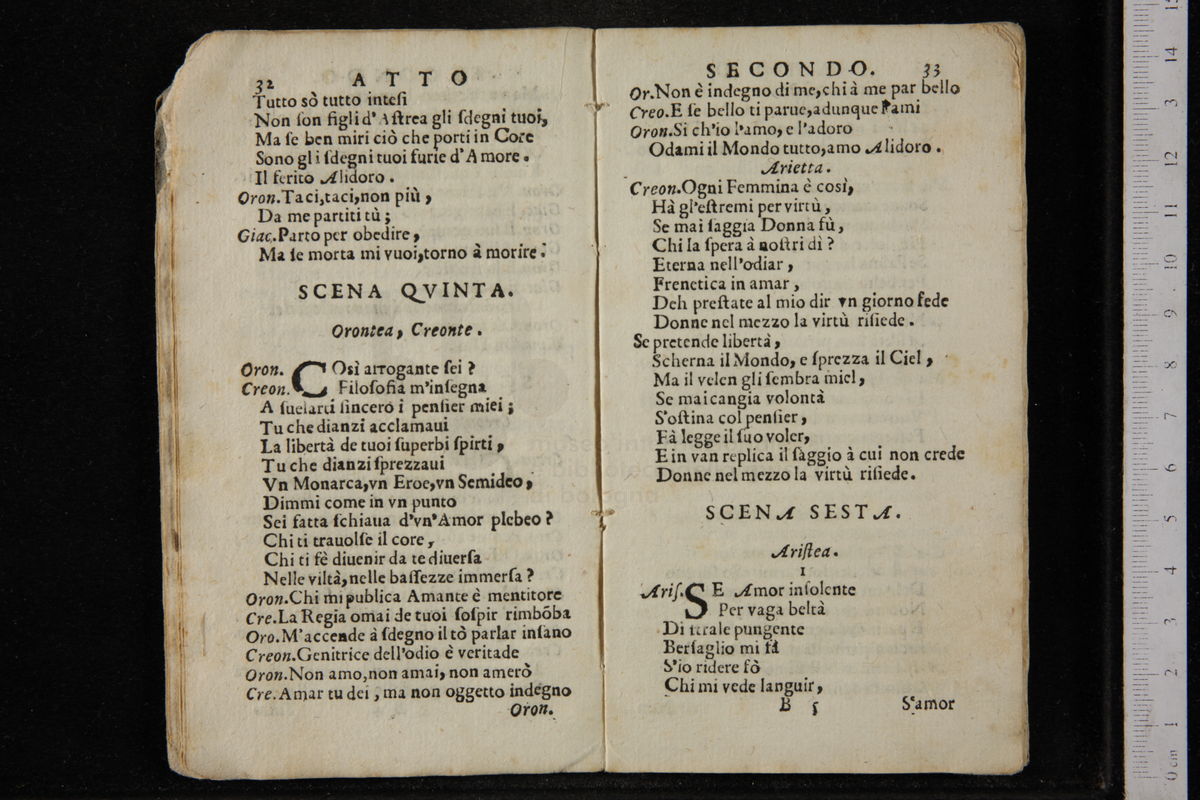 32 ATTO
Tutto sò tutto inteſi
Non ſon figli d'Aſtrea gli ſdegni tuoi,
Ma ſe ben miri ciò che porti in Core
Sono gli ſdegni tuoi furie d'Amore.
Il ferito Alidoro.
Oron. Taci, taci, non più,
Da me partiti tù;
Giac. Parto per obedire,
Ma ſe morta mi vuoi, torno à morire.
SCENA QVINTA.
Orontea, Creonte.
Oron. COsì arrogante ſei?
Creon. Filoſofia m'inſegna
A ſuelarti ſincero i penſier miei;
Tu che dianzi acclamaui
La libertà de tuoi ſuperbi ſpirti,
Tu che dianzi ſprezzaui
Vn Monarca, vn Eroe, vn Semideo,
Dimmi come in vn punto
Sei fatta ſchiaua d'vn'Amor plebeo?
Chi ti trauolſe il core,
Chi ti fè diuenir da te diuerſa
Nelle viltà, nelle baſſezze immerſa?
Oron. Chi mi publica Amante è mentitore
Cre. La Regia omai de tuoi ſoſpir rimbõba
Oro. M'accende à ſdegno il tò parlar inſano
Creon. Genitrice dell'odio è veritade
Oron. Non amo, non amai, non amerò
Cre. Amar tu dei, ma non oggetto indegno
Oron.
SECONDO. 33
Or. Non è indegno di me, chi à me par bello
Creo. E ſe bello ti parue, adunque l'ami
Oron. Si ch'io l'amo, e l'adoro
Odami il Mondo tutto, amo Alidoro.
Arietta.
Creon. Ogni Femmina è così,
Hà gl'eſtremi per virtù,
Se mai ſaggia Donna fù,
Chi la ſpera à noſtri dì?
Eterna nell'odiar,
Frenetica in amar,
Deh preſtate al mio dir vn giorno fede
Donne nel mezzo la virtù riſiede.
Se pretende libertà,
Scherna il Mondo, e ſprezza il Ciel,
Ma il velen gli ſembra miel,
Se mai cangia volontà
S'oſtina col penſier,
Fà legge il ſuo voler,
E in van replica il ſaggio à cui non crede
Donne nel mezzo la virtù riſiede.
SCENA SESTA.
Ariſtea.
I
Ariſ. SE Amor inſolente
Per vaga beltà
Di ſtrale pungente
Berſaglio mi fà
S'io ridere fò
Chi mi vede languir,
B 5 S'amor